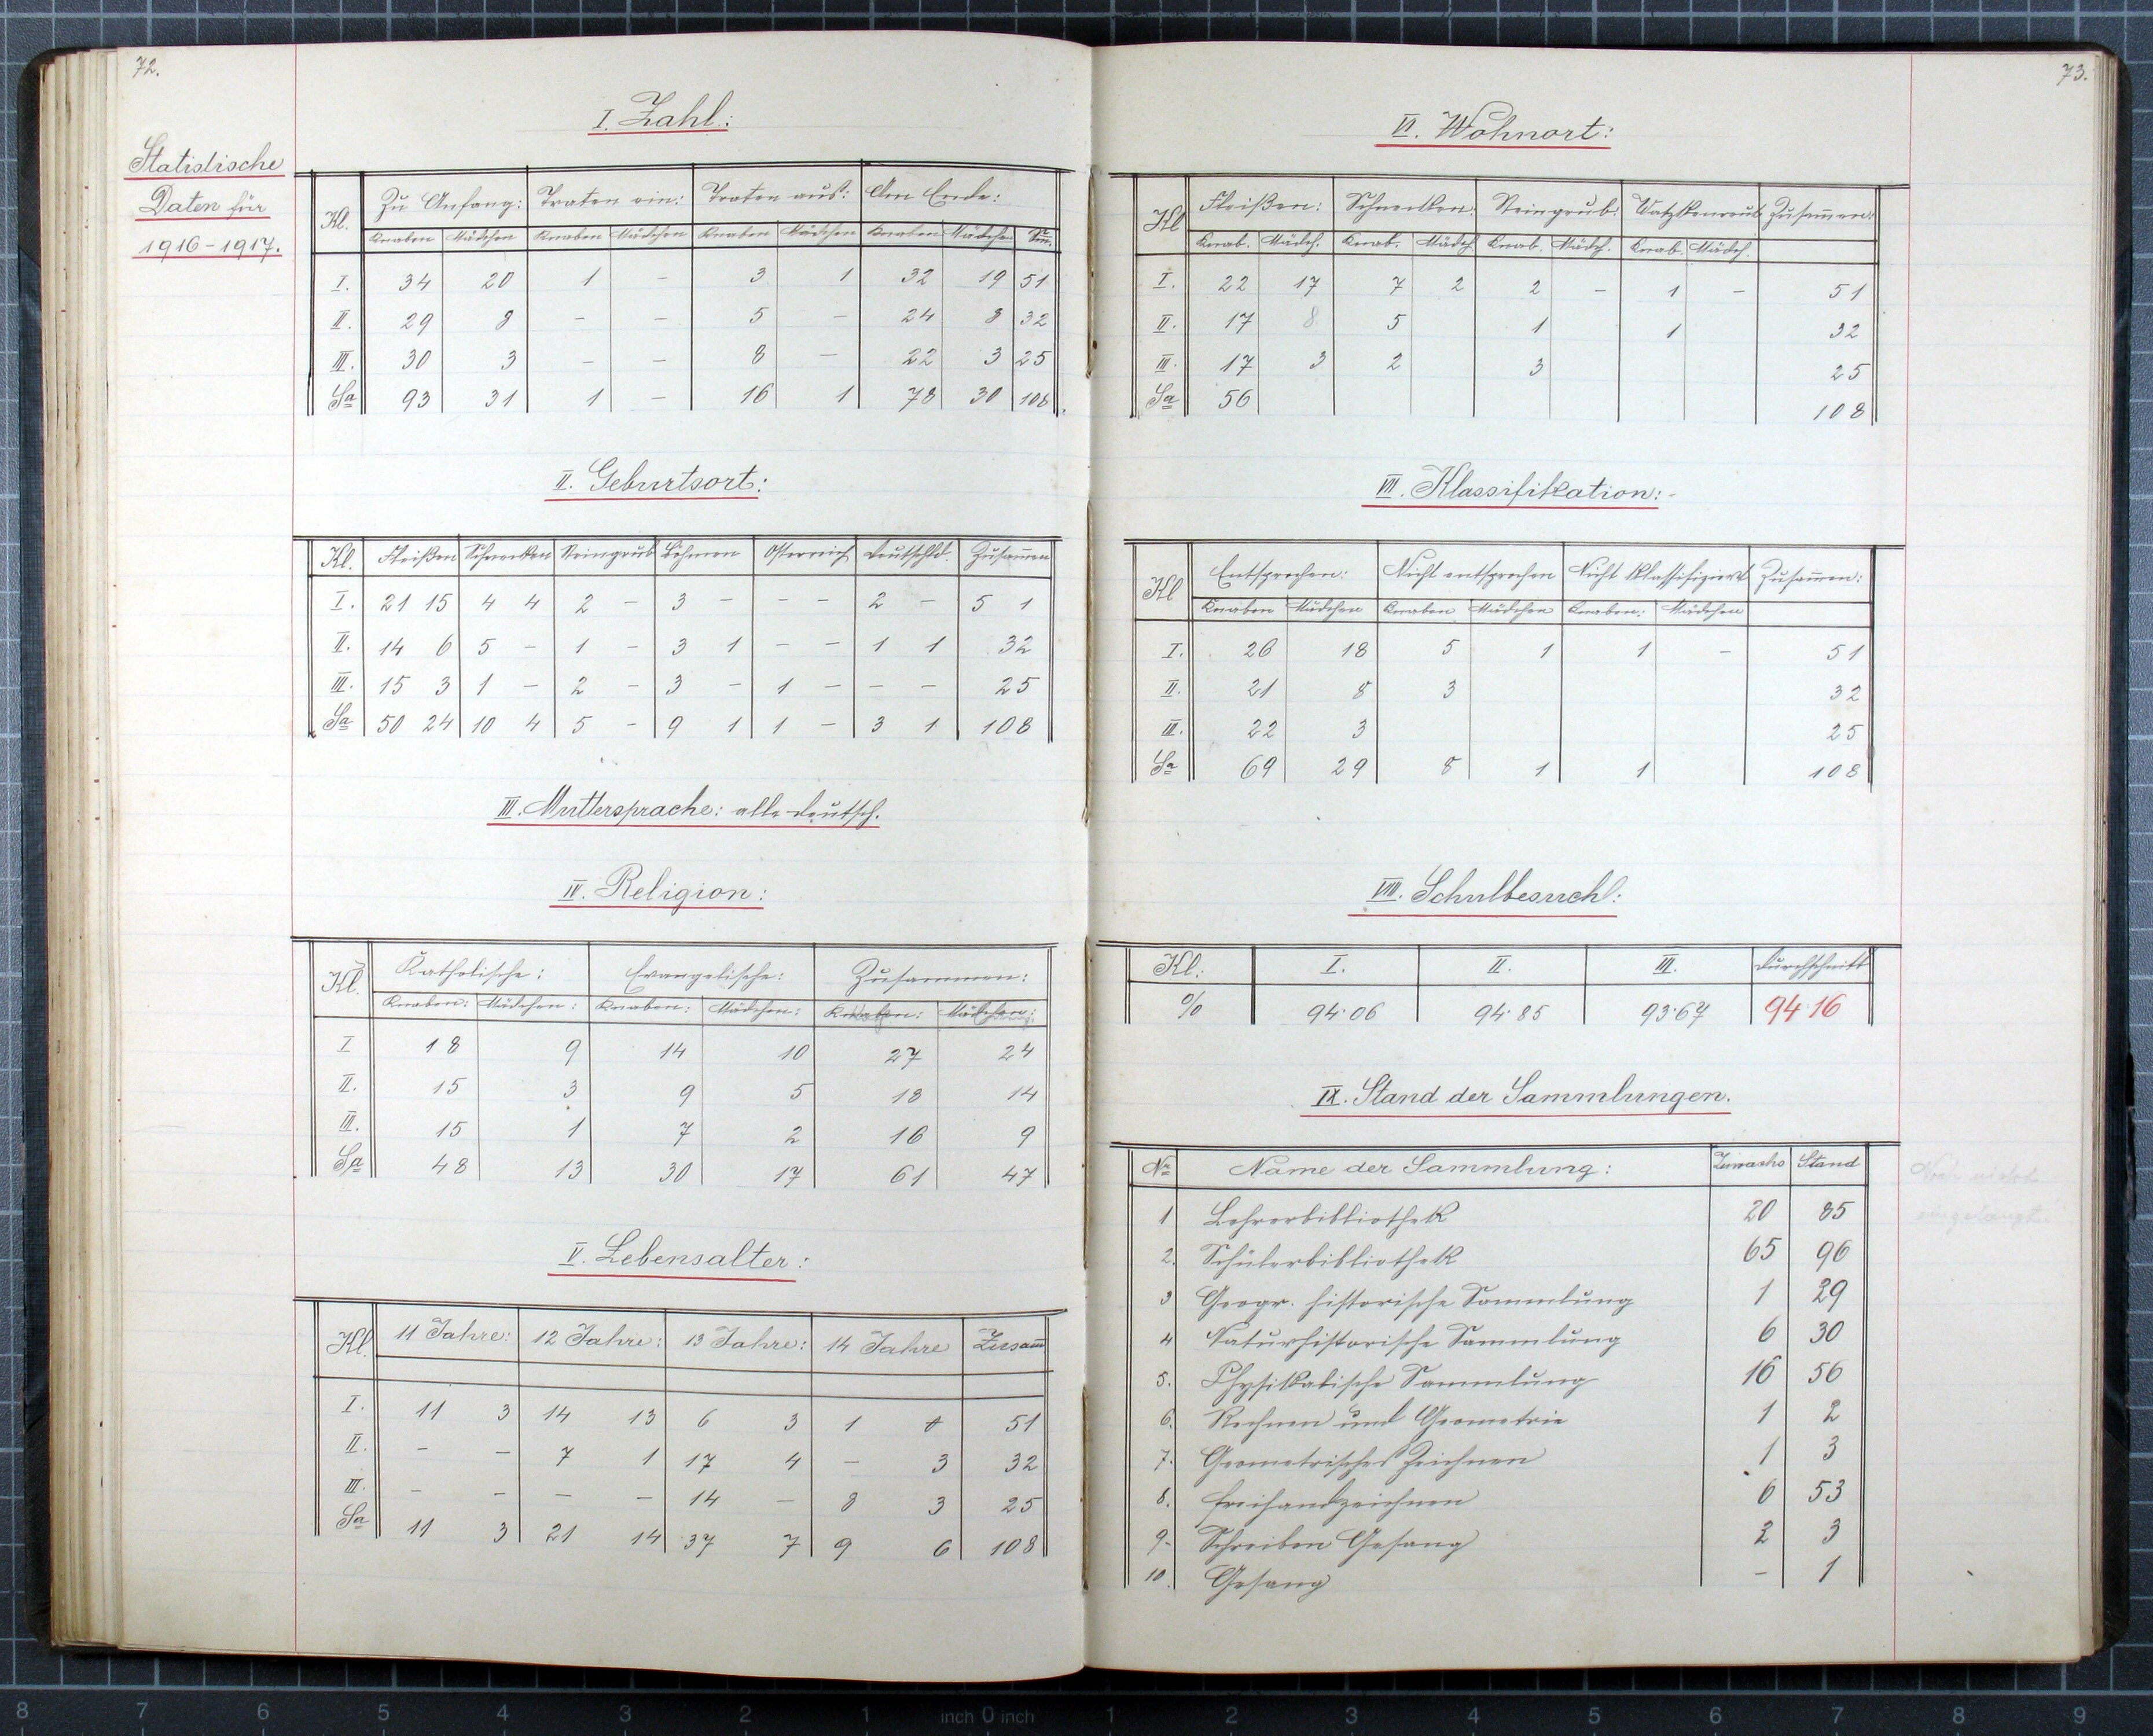 72.
Statistische
Daten für
1916-1917.
I. Zahl:
Kl. Zu Anfang: Traten ein: Traten aus: Am Ende:
Knaben Mädchen Knaben Mädchen Knaben Mädchen Knaben Mädchen Sm.
I. 34 20 1 - 3 1 32 19 51
II. 29 8 - - 5 - 24 8 32
III. 30 3 - - 8 - 22 3 25
Sa 93 31 1 - 16 1 78 30 108.
II. Geburtsort:
Kl. Fleißen Schnecken Steingrub Böhmen Österreich Deutschld. Zusam̄en
I. 21 15 4 4 2 - 3 - - - 2 - 5 1
II. 14 6 5 - 1 - 3 1 - - 1 1 32
III. 15 3 1 - 2 - 3 - 1 - - - 25
Sa 50 24 10 4 5 - 9 1 1 - 3 1 108
III. Muttersprache: alle deutsch.
IV. Religion:
Kl. Katholische: Evangelische: Zusammen:
Knaben: Mädchen: Knaben: Mädchen: Knaben: Mädchen:
I 18 9 14 10 27 24
II. 15 3 9 5 18 14
III. 15 1 7 2 16 9
Sa 48 13 30 17 61 47
V. Lebensalter:
Kl. 11 Jahre: 12 Jahre: 13 Jahre: 14 Jahre Zusam̄
I. 11 3 14 13 6 3 1 51
II. - - 7 1 17 4 - 3 32
III. - - - - 14 - 8 3 25
Sa 11 3 21 14 37 7 9 6 108
73.
VI. Wohnort:
Kl Fleißen: Schnecken: Steingrub: Watzkenreut Zusam̄en:
Knab. Mädch. Knab. Mädch Knab. Mädch. Knab. Mädch.
I. 22 17 7 2 2 - 1 - 51
II. 17 8 5 1 1 32
III. 17 3 2 3 25
Sa 56 108
VII. Klassifikation:-
Kl Entsprechen: Nicht entsprechen Nicht klassifiziert Zusam̄en:
Knaben Mädchen Knaben Mädchen Knaben: Mädchen
I. 26 18 5 1 1 - 51
II. 21 8 3 32
III. 22 3 25
Sa 69 29 8 1 1 108
VIII. Schulbesuch:
Kl: I. II. III. Durchschnitt
% 94·06 94·85 93·67 94·16
IX. Stand der Sammlungen.
Nr Name der Sammlung: Zuwachs Stand
1 Lehrerbibliothek 20 85
2. Schülerbibliothek 65 96
3 Geogr. historische Sammlung 1 29
4 Naturhistorische Sammlung 6 30
5. Physikalische Sammlung 16 56
6. Rechnen und Geometrie 1 2
7. Geometrisches Zeichnen 1 3
8. Freihandzeichnen 6 53
9. Schreiben Gesang 2 3
10. Gesang - 1
8 7 6 5 4 3 2 1 inch 0 inch 1 2 3 4 5 6 7 8 9